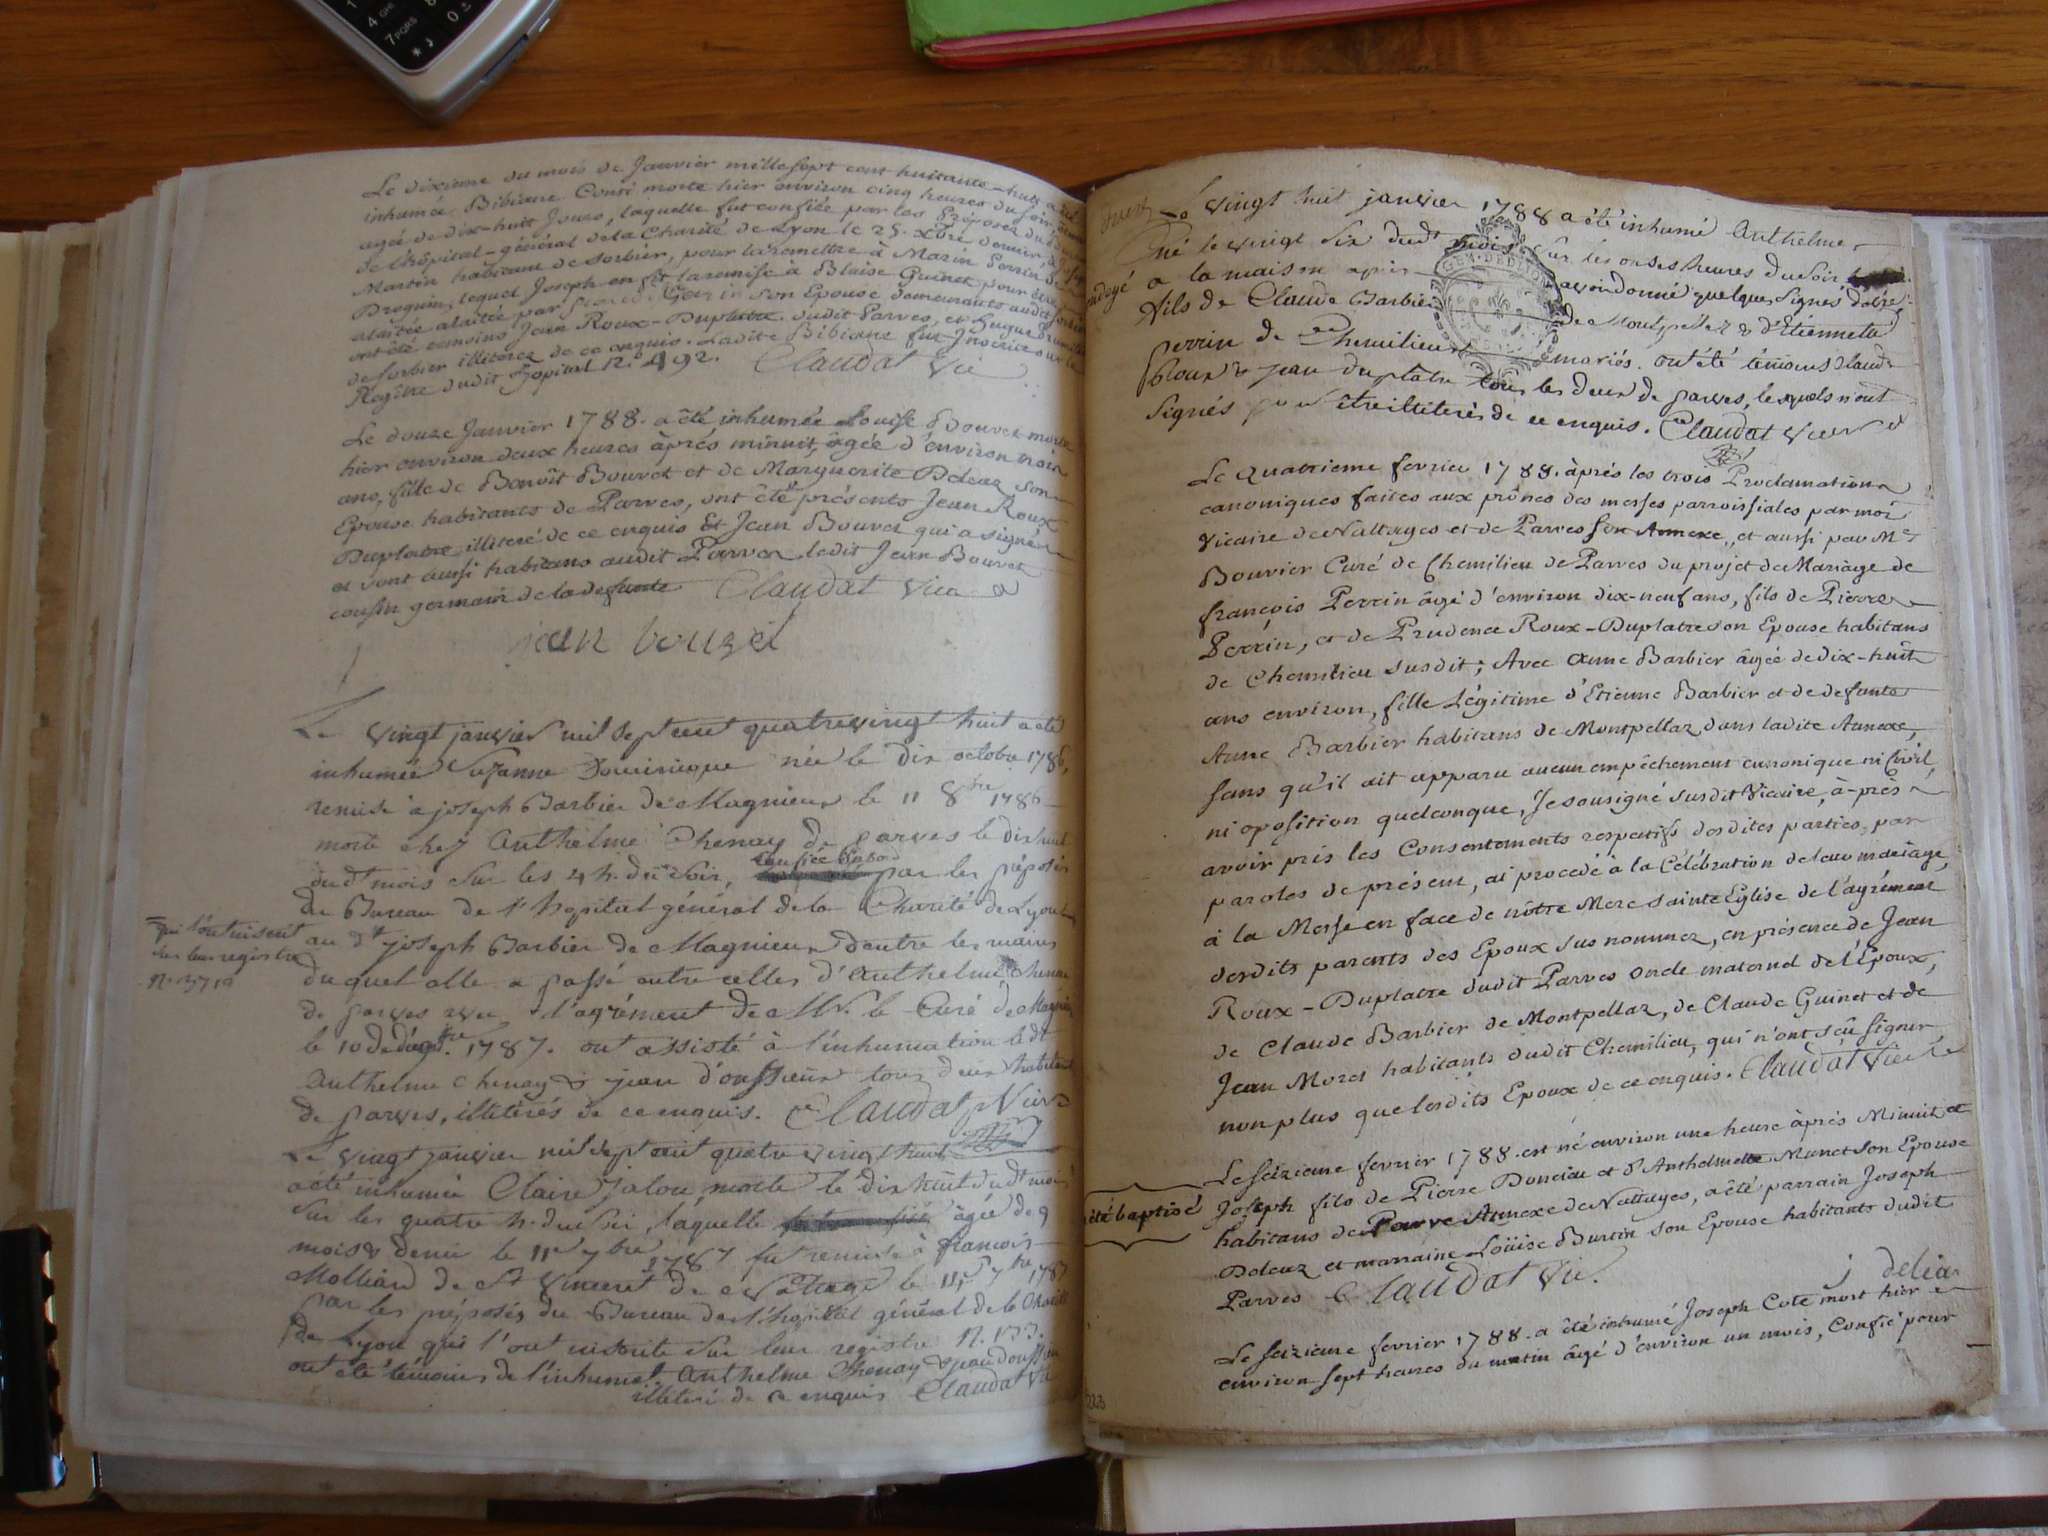 Le dixieme du mois de Janvier mille sept cent huitante-huit a été
inhumée Bibiane Conté morte hier environ cinq heures du soir,
agée de dix-huit Jours, laquelle fut confiée par les Préposez du
de l'hôpital-général de la Charité de Lyon le 25. xbre dernier, à
Martin habitant de sorbier, pour la remettre à Marin Perrin de
Droguin, lequel Joseph en fit la remise à Blaise Guinet pour être
alaitée par son Epouse demeurants audit
ont été temoins Jean Roux-Duplatre dudit Parves, et hugue
de sorbier illiterez de ce enquis. Ladite Bibiane fut Inscrite sur le
Regître dudit hopital N.° 492. Claudat Vic
Le douze Janvier 1788. a été inhumée Louise Bouvet morte
hier environ deux heures après minuit, âgée d'environ trois
ans, fille de Benoît Bouvet et de Marguerite Deleaz son
Epouse habitants de Parves, ont été présents Jean Roux
Duplatre illiteré de ce enquis Et Jean Bouvet qui a signé
et sont aussi habitans audit Parves ledit Jean Bouvet
cousin germain de la defunte Claudat Vica
jean bouvet
Le vingt janvier mil sept cent quatre vingt huit a été
inhumée Suzanne Dominique née le dix octobre 1786,
remise à joseph Barbier de Magnieux le 11 8bre 1786
morte chez anthelme Chenay de parves le dix huit
dudt mois sur les 4 h. du soir, confiée d'abord par les préposés
du Bureau de l'hopital général de la Charité de Lyon
qui l'ont inscrit
sur leur registre
au dt joseph Barbier de Magnieux d'entre les mains
duquel elle a passé entre celles d'anthelme chenay
de parves avec l'agrément de Mr. le Curé de Magnieu
le 10 1787. ont assisté à l'inhumation le dt
anthelme chenay & jean d'oussieux tous deux habitans
de parves, illiterés de ce enquis. Claudat Vica
Le vingt janvier mil sept cent quatre vingt huit
a été inhumée Claire Jalou morte le dix huit dudt mois
sur les quatre h. du soir, laquelle âgée de 9
mois & demi le 11 7bre 1787 fut remise à françois
Molliard de St Vincent de Nattage le 11 7bre 1787
par les préposés du Bureau de l'hopital général de la Charité
de Lyon qui l'ont inscrite sur leur registre N. 133.
ont été témoins de l'inhumat. anthelme Chenay & jean doussieu
illiteré de ce enquis Claudat Vic
Le vingt huit janvier 1788 a été inhumé Anthelme
né le vingt six dudt mois sur les onses heures du soir,
ondoyé a la maison après avoir donné quelques signes de vie
GEN. DE DIJON
fils de Claude Barbier de Montpellaz & d'Etiennette
perrin de Chemilieu mariés. ont été témoins Claude
Roux & jean duplatre tous les deux de parves, lesquels n'ont
signés pour être illiterés de ce enquis. Claudat Vic
Le quatrieme fevrier 1788. après les trois Proclamations
canoniques faites aux prônes des messes parroissiales par moi
Vicaire de Nattages et de Parves son Annexe, et aussi par Mr
Bouvier Curé de Chemilieu de Parves du projet de Mariage de
françois Perrin âgé d'environ dix-neuf ans, fils de Pierre
Perrin, et de Prudence Roux-Duplatre son Epouse habitans
de Chemilieu susdit; Avec Anne Barbier âgée de dix-huit
ans environ, fille Légitime d'Etienne Barbier et de defunte
Anne Barbier habitans de Montpellaz dans ladite Annexe,
sans qu'il ait apparu aucun empêchement canonique ni Civil,
ni oposition quelconque, Je sousigné susdit Vicaire, à-près
avoir pris les Consentements respectifs desdites parties, par
paroles de présent, ai procedé à la Célébration de leur mariage,
à la Messe en face de nôtre Mere sainte Eglise de l'agrément
desdits parents des Epoux sus nommez, en présence de Jean
Roux-Duplatre dudit Parves oncle maternel de l'Epoux,
de Claude Barbier de Montpellaz, de Claude Guinet et de
Jean Moret habitants dudit Chemilieu, qui n'ont sçû signer
non plus que lesdits Epoux de ce enquis. Claudat Vic
Le seizieme fevrier 1788. est né environ une heure après Minuit et
a été baptisé Joseph fils de Pierre Donciou et d'Anthelmette Munet son Epouse
habitans de Parve Annexe de Nattages, a été parrain Joseph
Deleaz et marraine Loüise Burtin son Epouse habitants dudit
Parves Claudat Vic. j delia
Le seizieme fevrier 1788. a été inhumé Joseph Cote mort hier
environ sept heures du matin âgé d'environ un mois, Confié pour
223